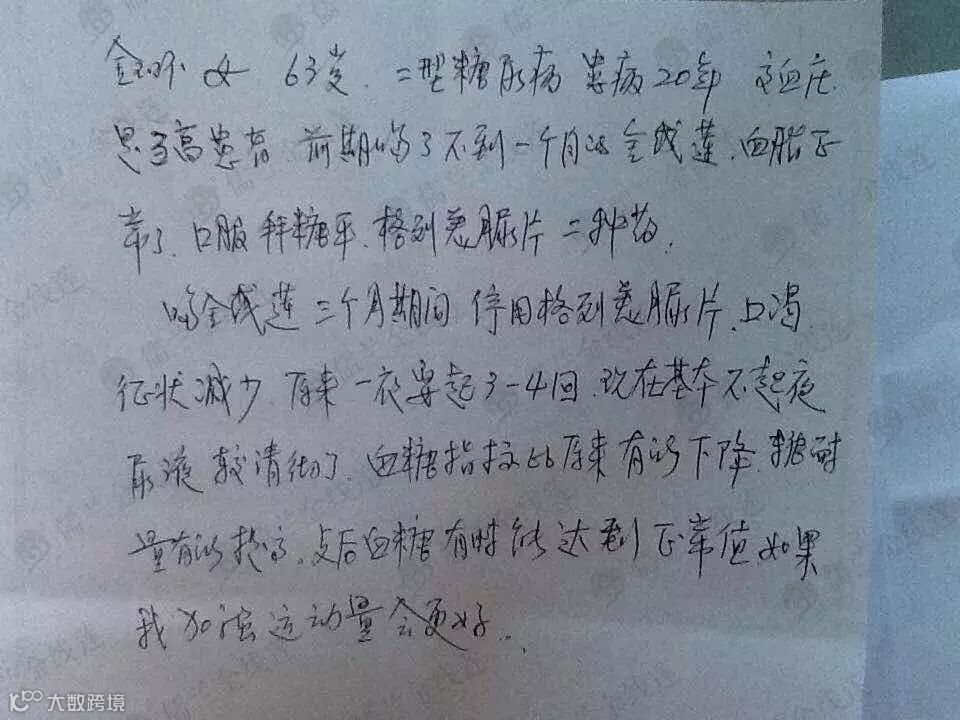 女 63岁. 二型糖尿病 患病20年 高血压
患者. 前期喝了不到一个月的金线莲. 血脂正
常了. 口服拜糖平. 格列美脲片二种药.
喝金线莲三个月期间 停用格列美脲片. 口渴
征状减少. 原来一夜要起3-4回. 现在基本不起夜
尿液较清彻了. 血糖指数比原来有所下降. 糖耐
量有所提高. 饭后血糖有时能达到正常值. 如果
我加强运动量会更好.
大数跨境